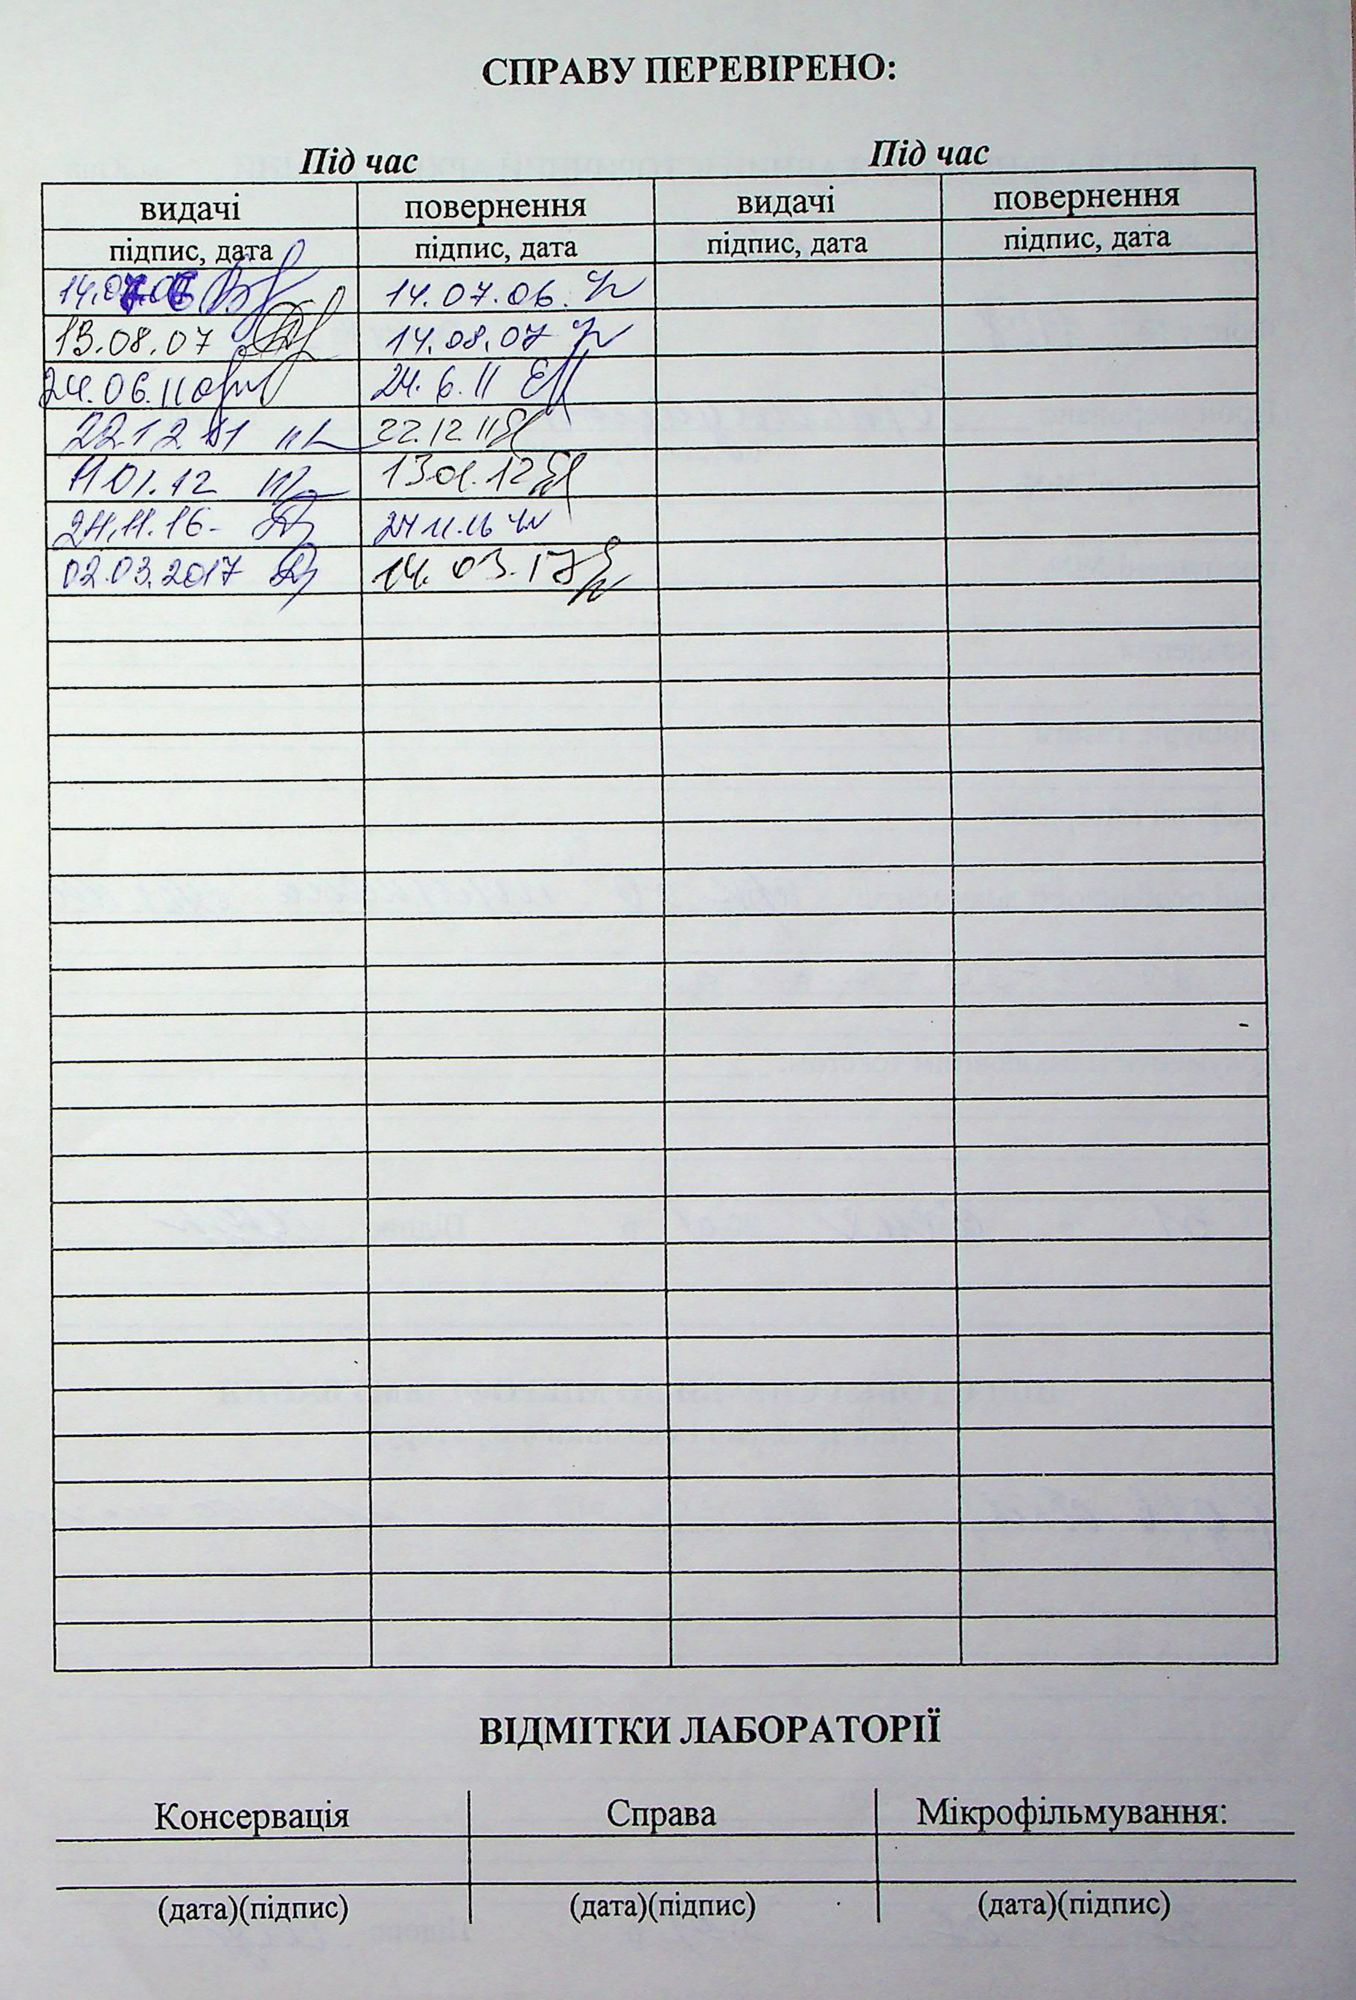 СПРАВУ ПЕРЕВІРЕНО:
Під час Під час
видачі повернення видачі повернення
підпис, дата підпис, дата підпис, дата підпис, дата
14.07.06 14.07.06.
13.08.07 14.08.07
24.06.11 24.6.11
22.12.11 22.12.11
11.01.12 13.01.12
24.11.16 24.11.16
02.03.2017 14.03.17
ВІДМІТКИ ЛАБОРАТОРІЇ
Консервація Справа Мікрофільмування:
(дата)(підпис) (дата)(підпис) (дата)(підпис)